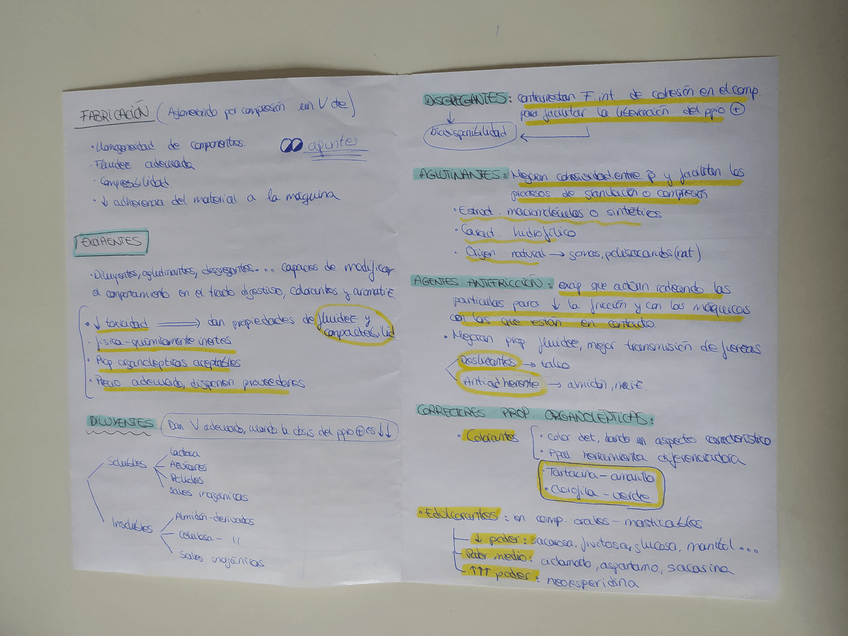 FABRICACIÓN (Aglomerando por compresión un V de)
· Homogeneidad de componentes
· Fluidez adecuada
· Compresibilidad
· ↓ adherencia del material a la máquina
apuntes
EXCIPIENTES
· Diluyentes, aglutinantes, disgregantes... capaces de modificar
el comportamiento en el tracto digestivo, colorantes y aromatiz.
· ↓ toxicidad ⟹ dan propiedades de fluidez y
compactabilid
· física-químicamente inertes
· Prop organolépticas aceptables
· Precio adecuado, disponen proveedores
DILUYENTES Dan V adecuado, cuando la dosis del ppio ⊕ es ↓↓
Solubles
lactosa
Azúcares
Polioles
sales inorgánicas
Insolubles
Almidón-derivados
Celulosa - 11
sales inorgánicas
DISGREGANTES: contrarrestan F. int de cohesión en el comp
para facilitar la liberación del ppio ⊕
Biodisponibilidad
AGLUTINANTES: Mejoran cohesividad entre p y facilitan los
procesos de granulación o compresión
· Estruct. macromoléculas o sintéticos
· Caract. hidrofílico
· Origen natural → gomas, polisacáridos (nat)
AGENTES ANTIFRICCIÓN: excip que actúan rodeando las
partículas para ↓ la fricción y con las máquinas
con las que están en contacto
· Mejoran prop fluidez, mejor transmisión de fuerzas
Deslizantes → talco
Antiadherente → almidón,
CORRECTORES PROP ORGANOLÉPTICAS:
· Colorantes
· color det, dando un aspecto característico
· herramienta diferenciadora
· Tartacina - amarillo
· Clorofila - verde
· Edulcorantes: en comp. orales - masticables
↓ poder: sacarosa, fructosa, glucosa, manitol...
Poder medio: ciclamato, aspartamo, sacarina
↑↑↑ poder: neoesperidina